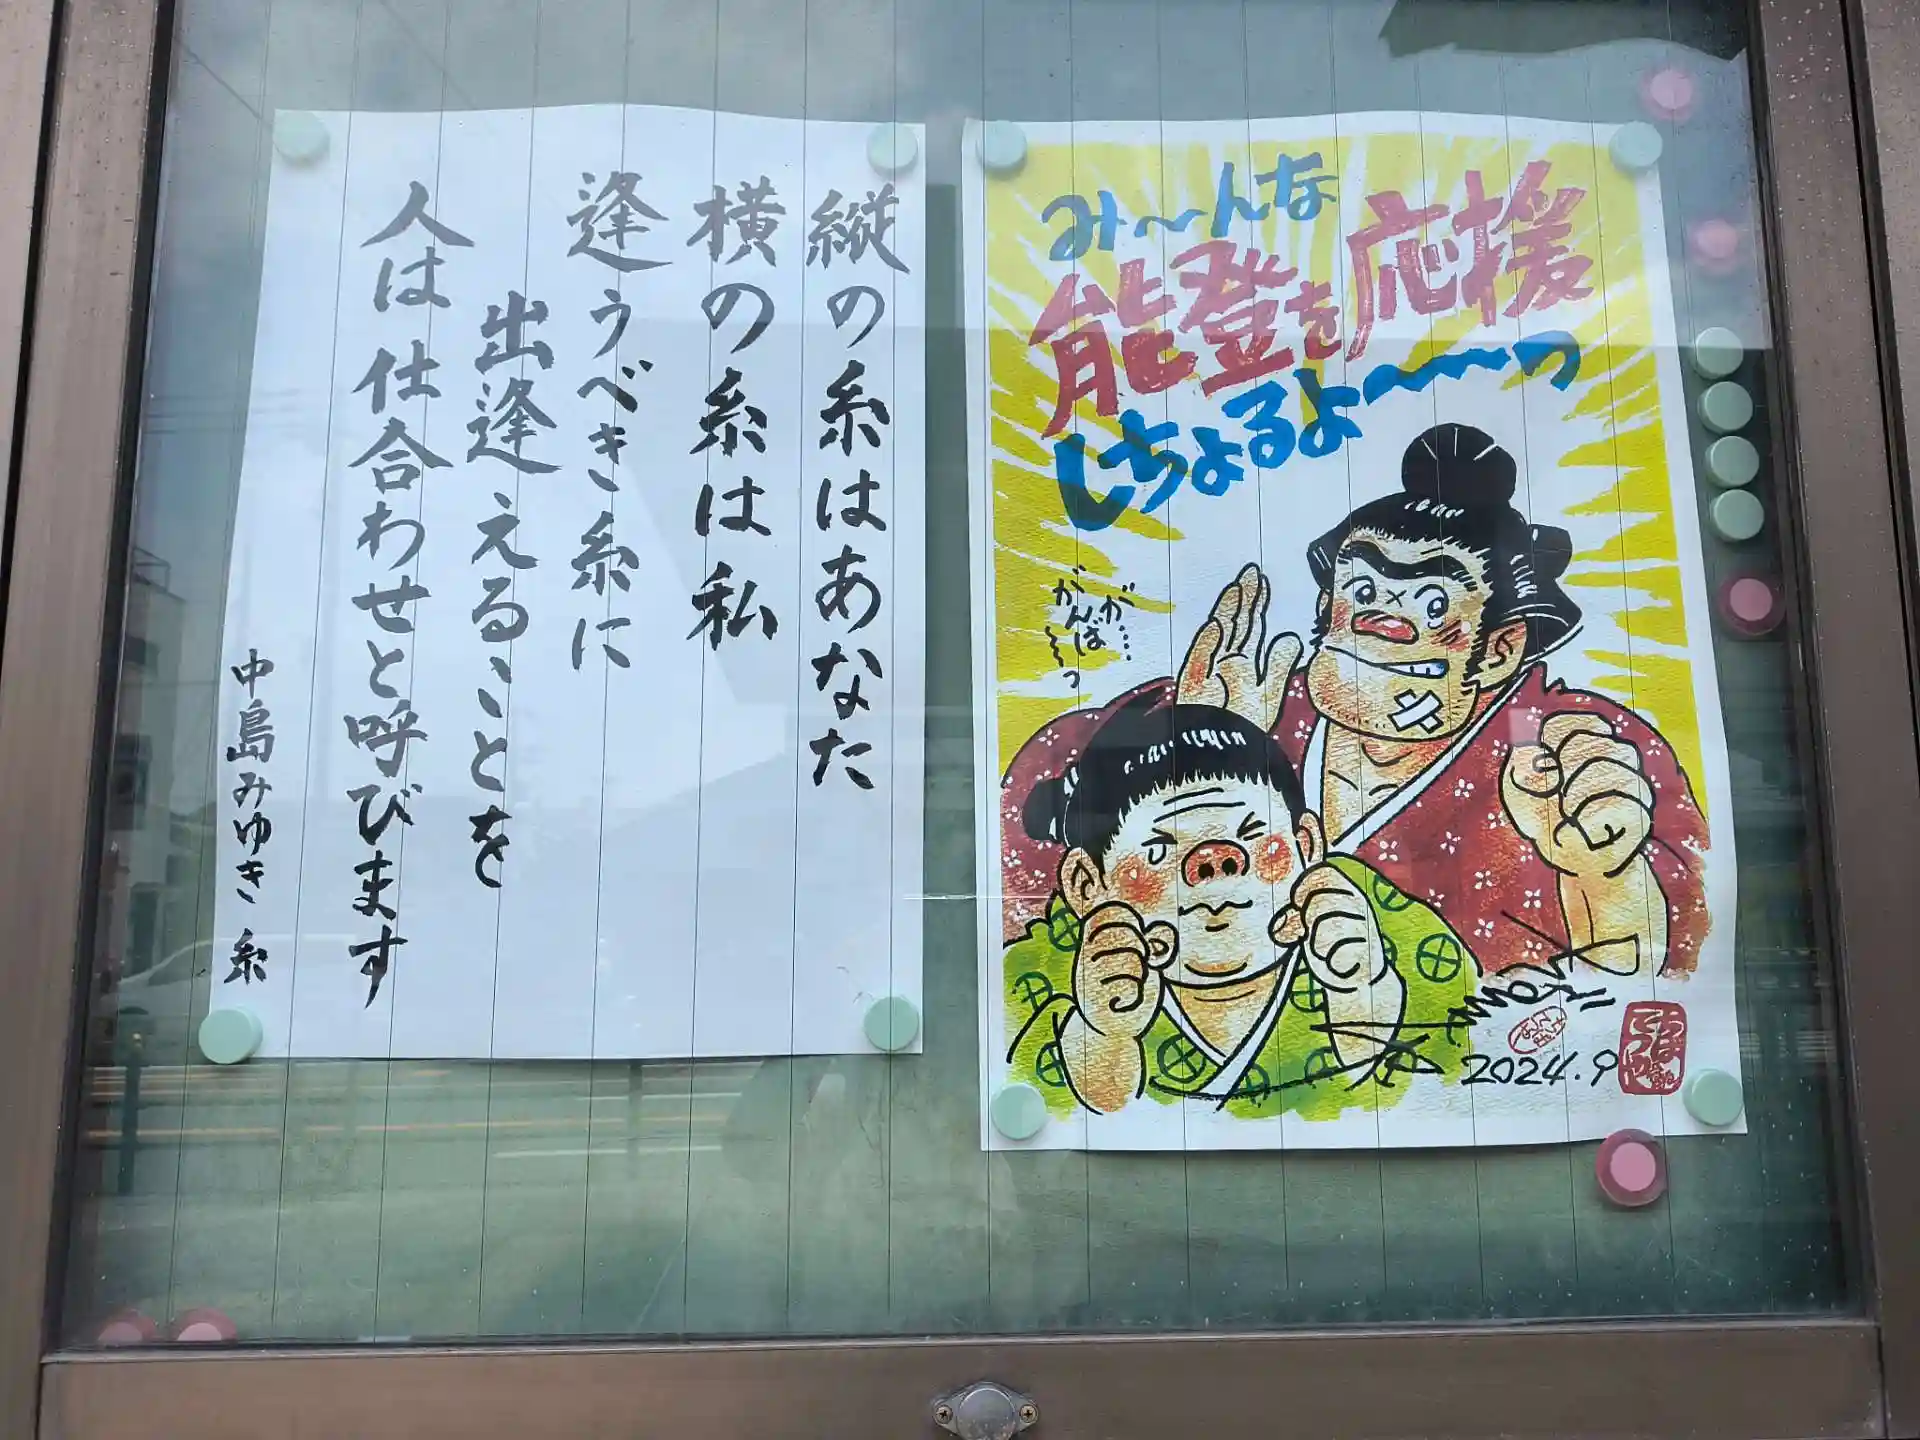 縦の糸はあなた
横の糸は私
逢うべき糸に
出逢えることを
人は仕合わせと呼びます
中島みゆき 糸
み〜んな
能登を応援
しちょるよ〜〜っ
が……
がんば〜〜っ
2024.9